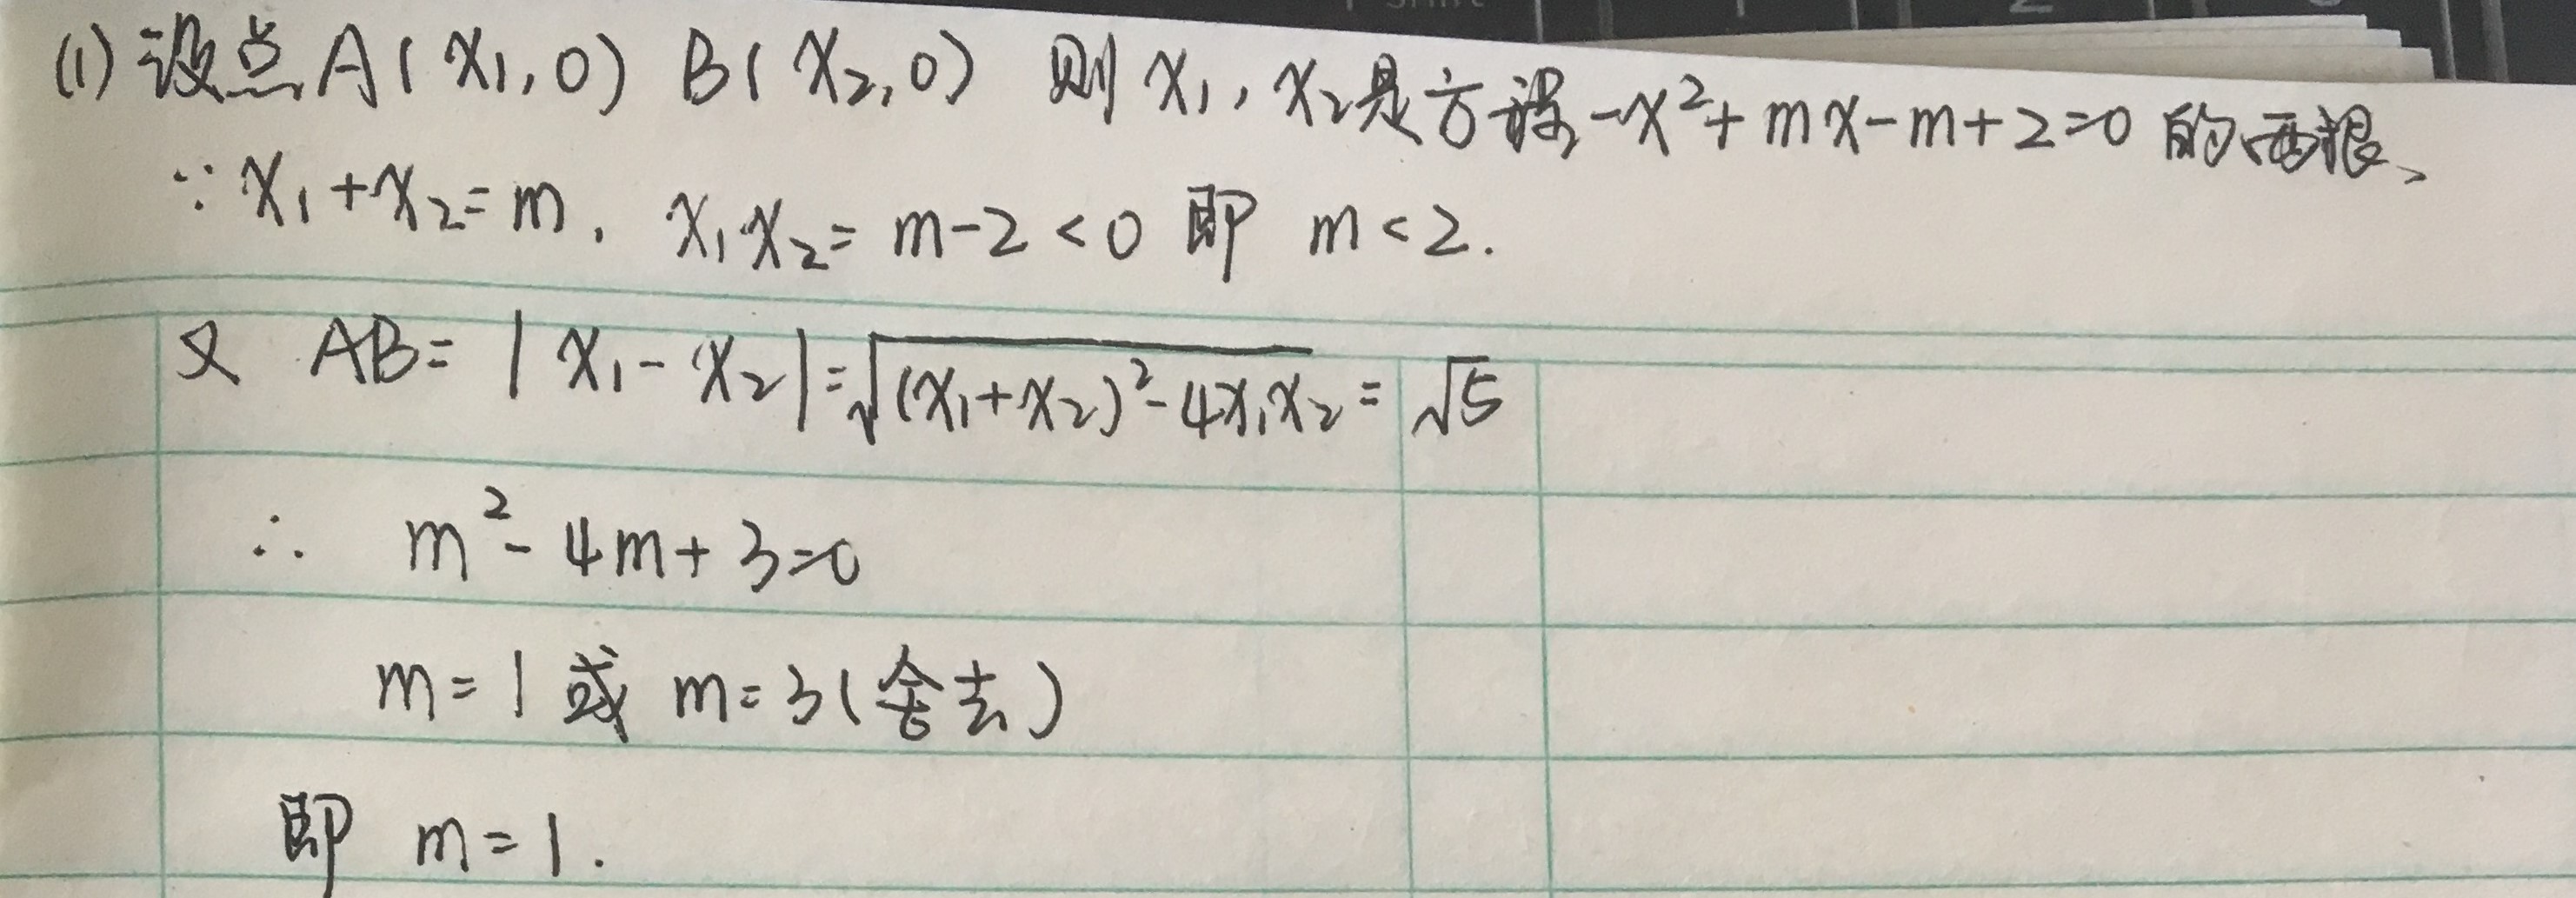 (1) 设点 A(x₁,0) B(x₂,0) 则 x₁, x₂是方程 -x²+mx-m+2=0 的两根、
∵ x₁+x₂=m, x₁x₂=m-2<0 即 m<2.
又 AB=|x₁-x₂|=√((x₁+x₂)²-4x₁x₂)=√5
∴ m²-4m+3=0
m=1 或 m=3(舍去)
即 m=1.